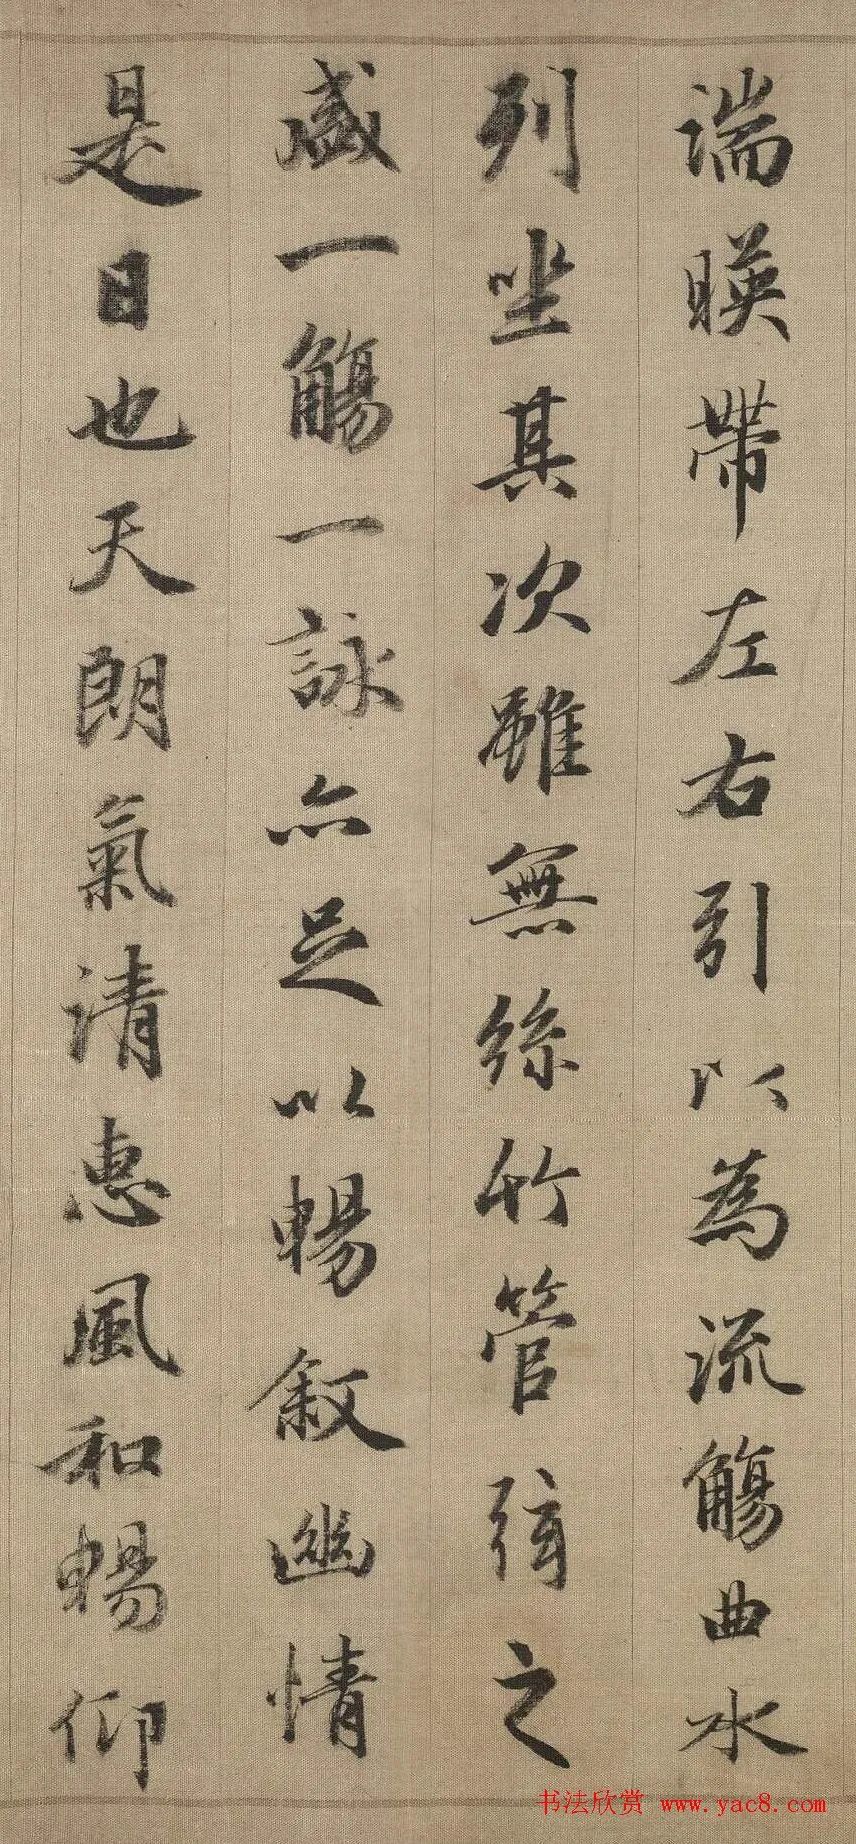 湍暎帶左右引以為流觴曲水
列坐其次雖無絲竹管弦之
盛一觴一詠亦足以暢叙幽情
是日也天朗氣清惠風和暢仰
书法欣赏 www.yac8.com